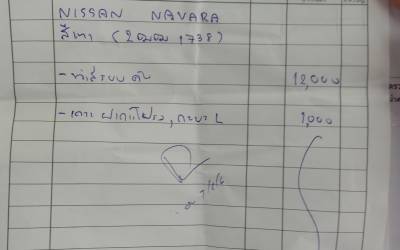 NISSAN NAVARA
สีเทา (2ฒฒ 1738)
- ทำสีรอบคัน 12,000
- เคาะฝากระโปรง, กระบะ L 1,000